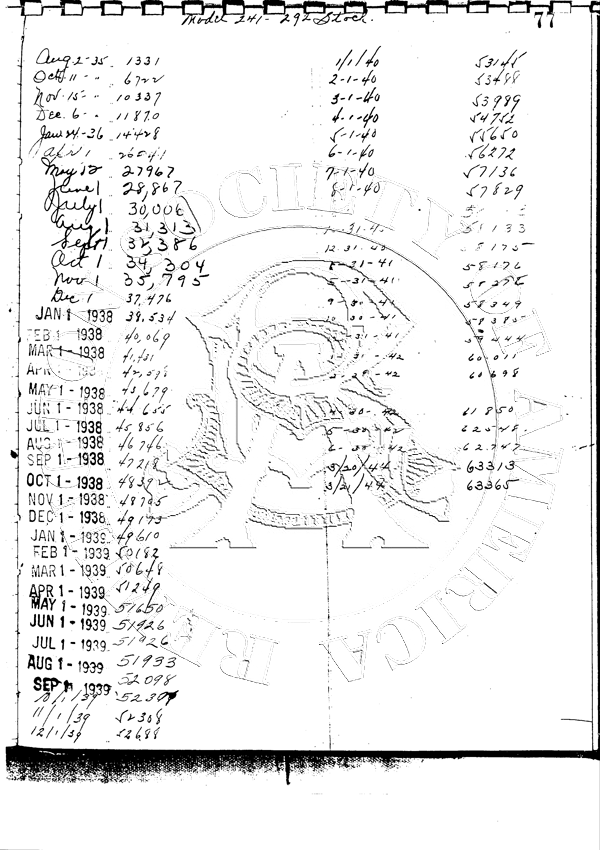 77
Model 241 - 292 Stock.
Aug 2-35 1331
Oct 11 - " 6722
Nov. 15 - " 10337
Dec. 6 - " 11870
Jan 24-36 14428
Apr 1 26541
May 12 27967
June 1 28,867
July 1 30,006
Aug 1 31,313
Sept 1 32,386
Oct 1 34,304
Nov 1 35,795
Dec 1 37,476
JAN 1 1938 38,534
FEB 1 - 1938 40,069
MAR 1 - 1938
MAY 1 - 1938 43,679
JUN 1 - 1938 44,655
JUL 1 - 1938 45,856
AUG 1 - 1938 46,746
SEP 1 - 1938 47218
OCT 1 - 1938 48392
NOV 1 - 1938 48705
DEC 1 - 1938 49173
JAN 1 - 1939 49610
FEB 1 - 1939 50182
MAR 1 - 1939 50648
APR 1 - 1939 51249
MAY 1 - 1939 51650
JUN 1 - 1939 51926
JUL 1 - 1939 51926
AUG 1 - 1939 51933
SEP 1 1939 52098
10/1/39
11/1/39 52308
12/1/39 52688
1/1/40 53145
2-1-40 53488
3-1-40 53989
4-1-40 54752
5-1-40 55650
6-1-40 56272
7-1-40 57136
8-1-40 57829
12-31-40 58175
58176
58349
58385
60011
60698
61850
62548
62747
3/20/44 - 63313
3/21/44 63365
SOCIETY OF AMERICA